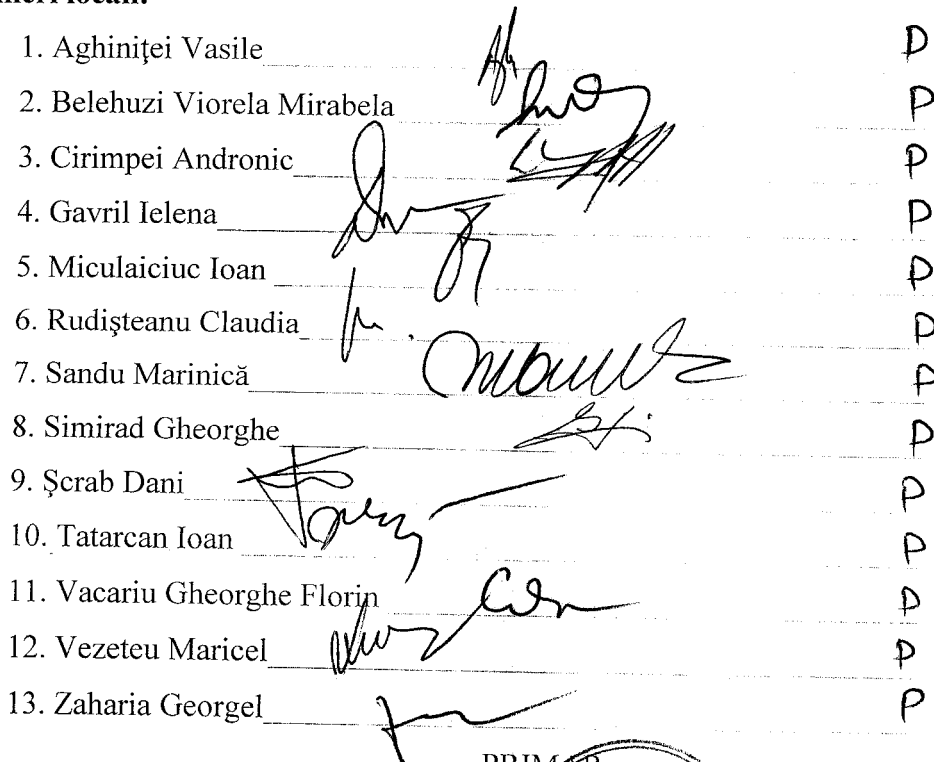 1. Aghiniţei Vasile P
2. Belehuzi Viorela Mirabela P
3. Cirimpei Andronic P
4. Gavril Ielena P
5. Miculaiciuc Ioan P
6. Rudişteanu Claudia P
7. Sandu Marinică P
8. Simirad Gheorghe P
9. Şcrab Dani P
10. Tatarcan Ioan P
11. Vacariu Gheorghe Florin P
12. Vezeteu Maricel P
13. Zaharia Georgel P
PRIMAR